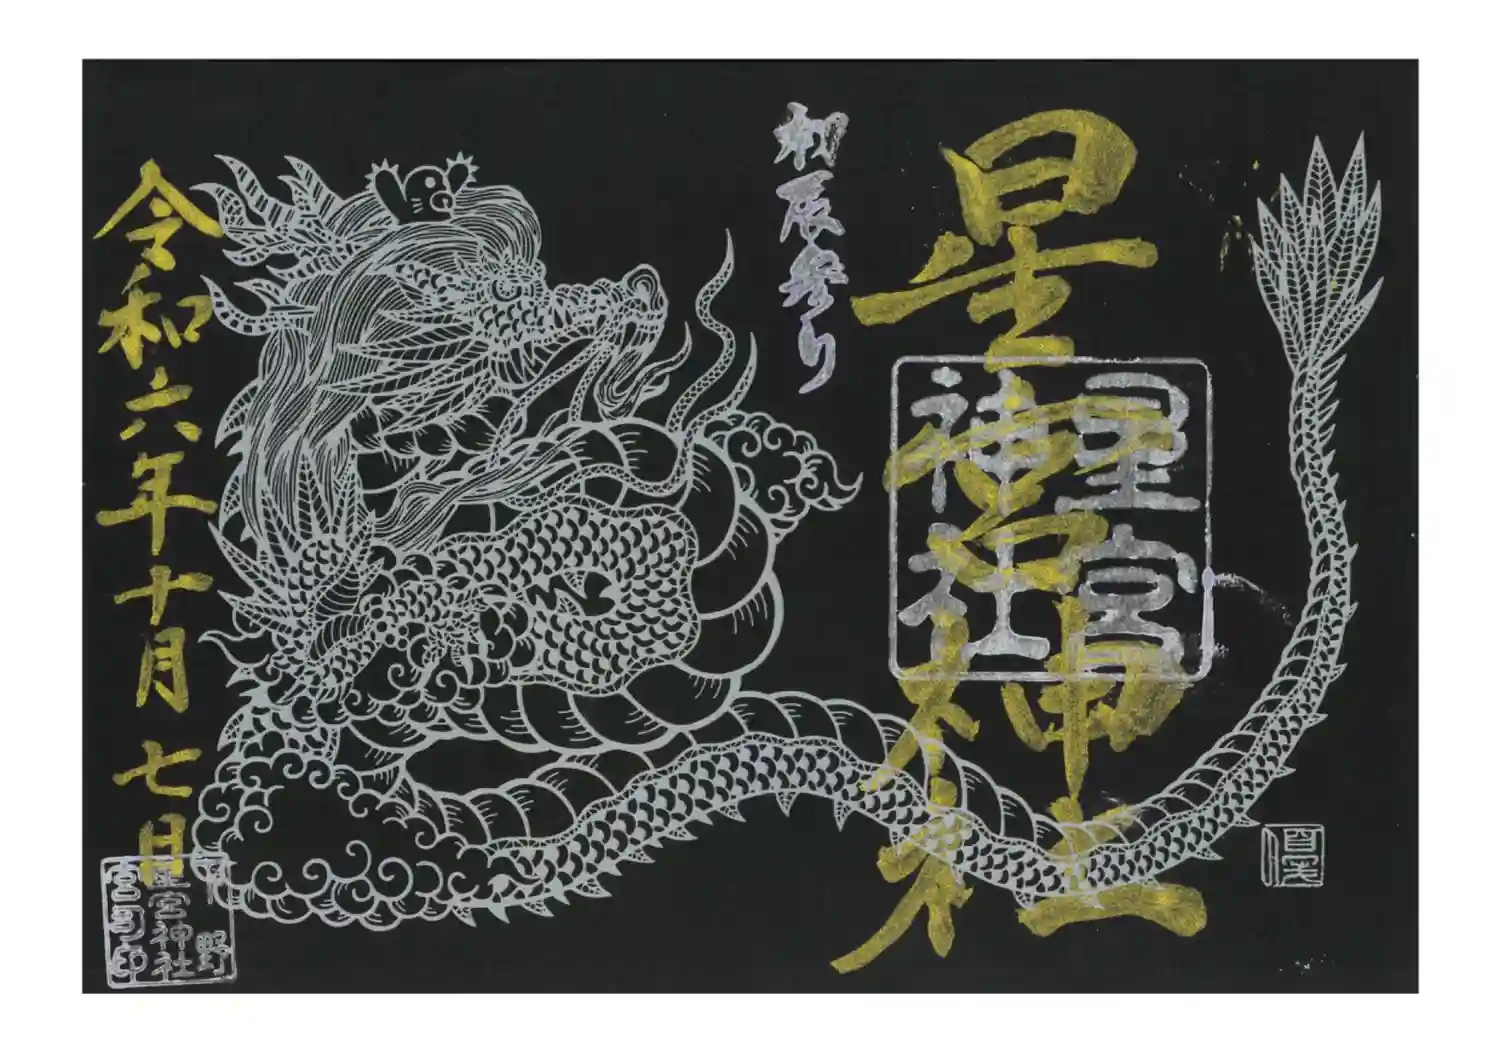 星宮神社
星宮
神社
初辰参り
令和六年十月七日
星宮神社
宮司印